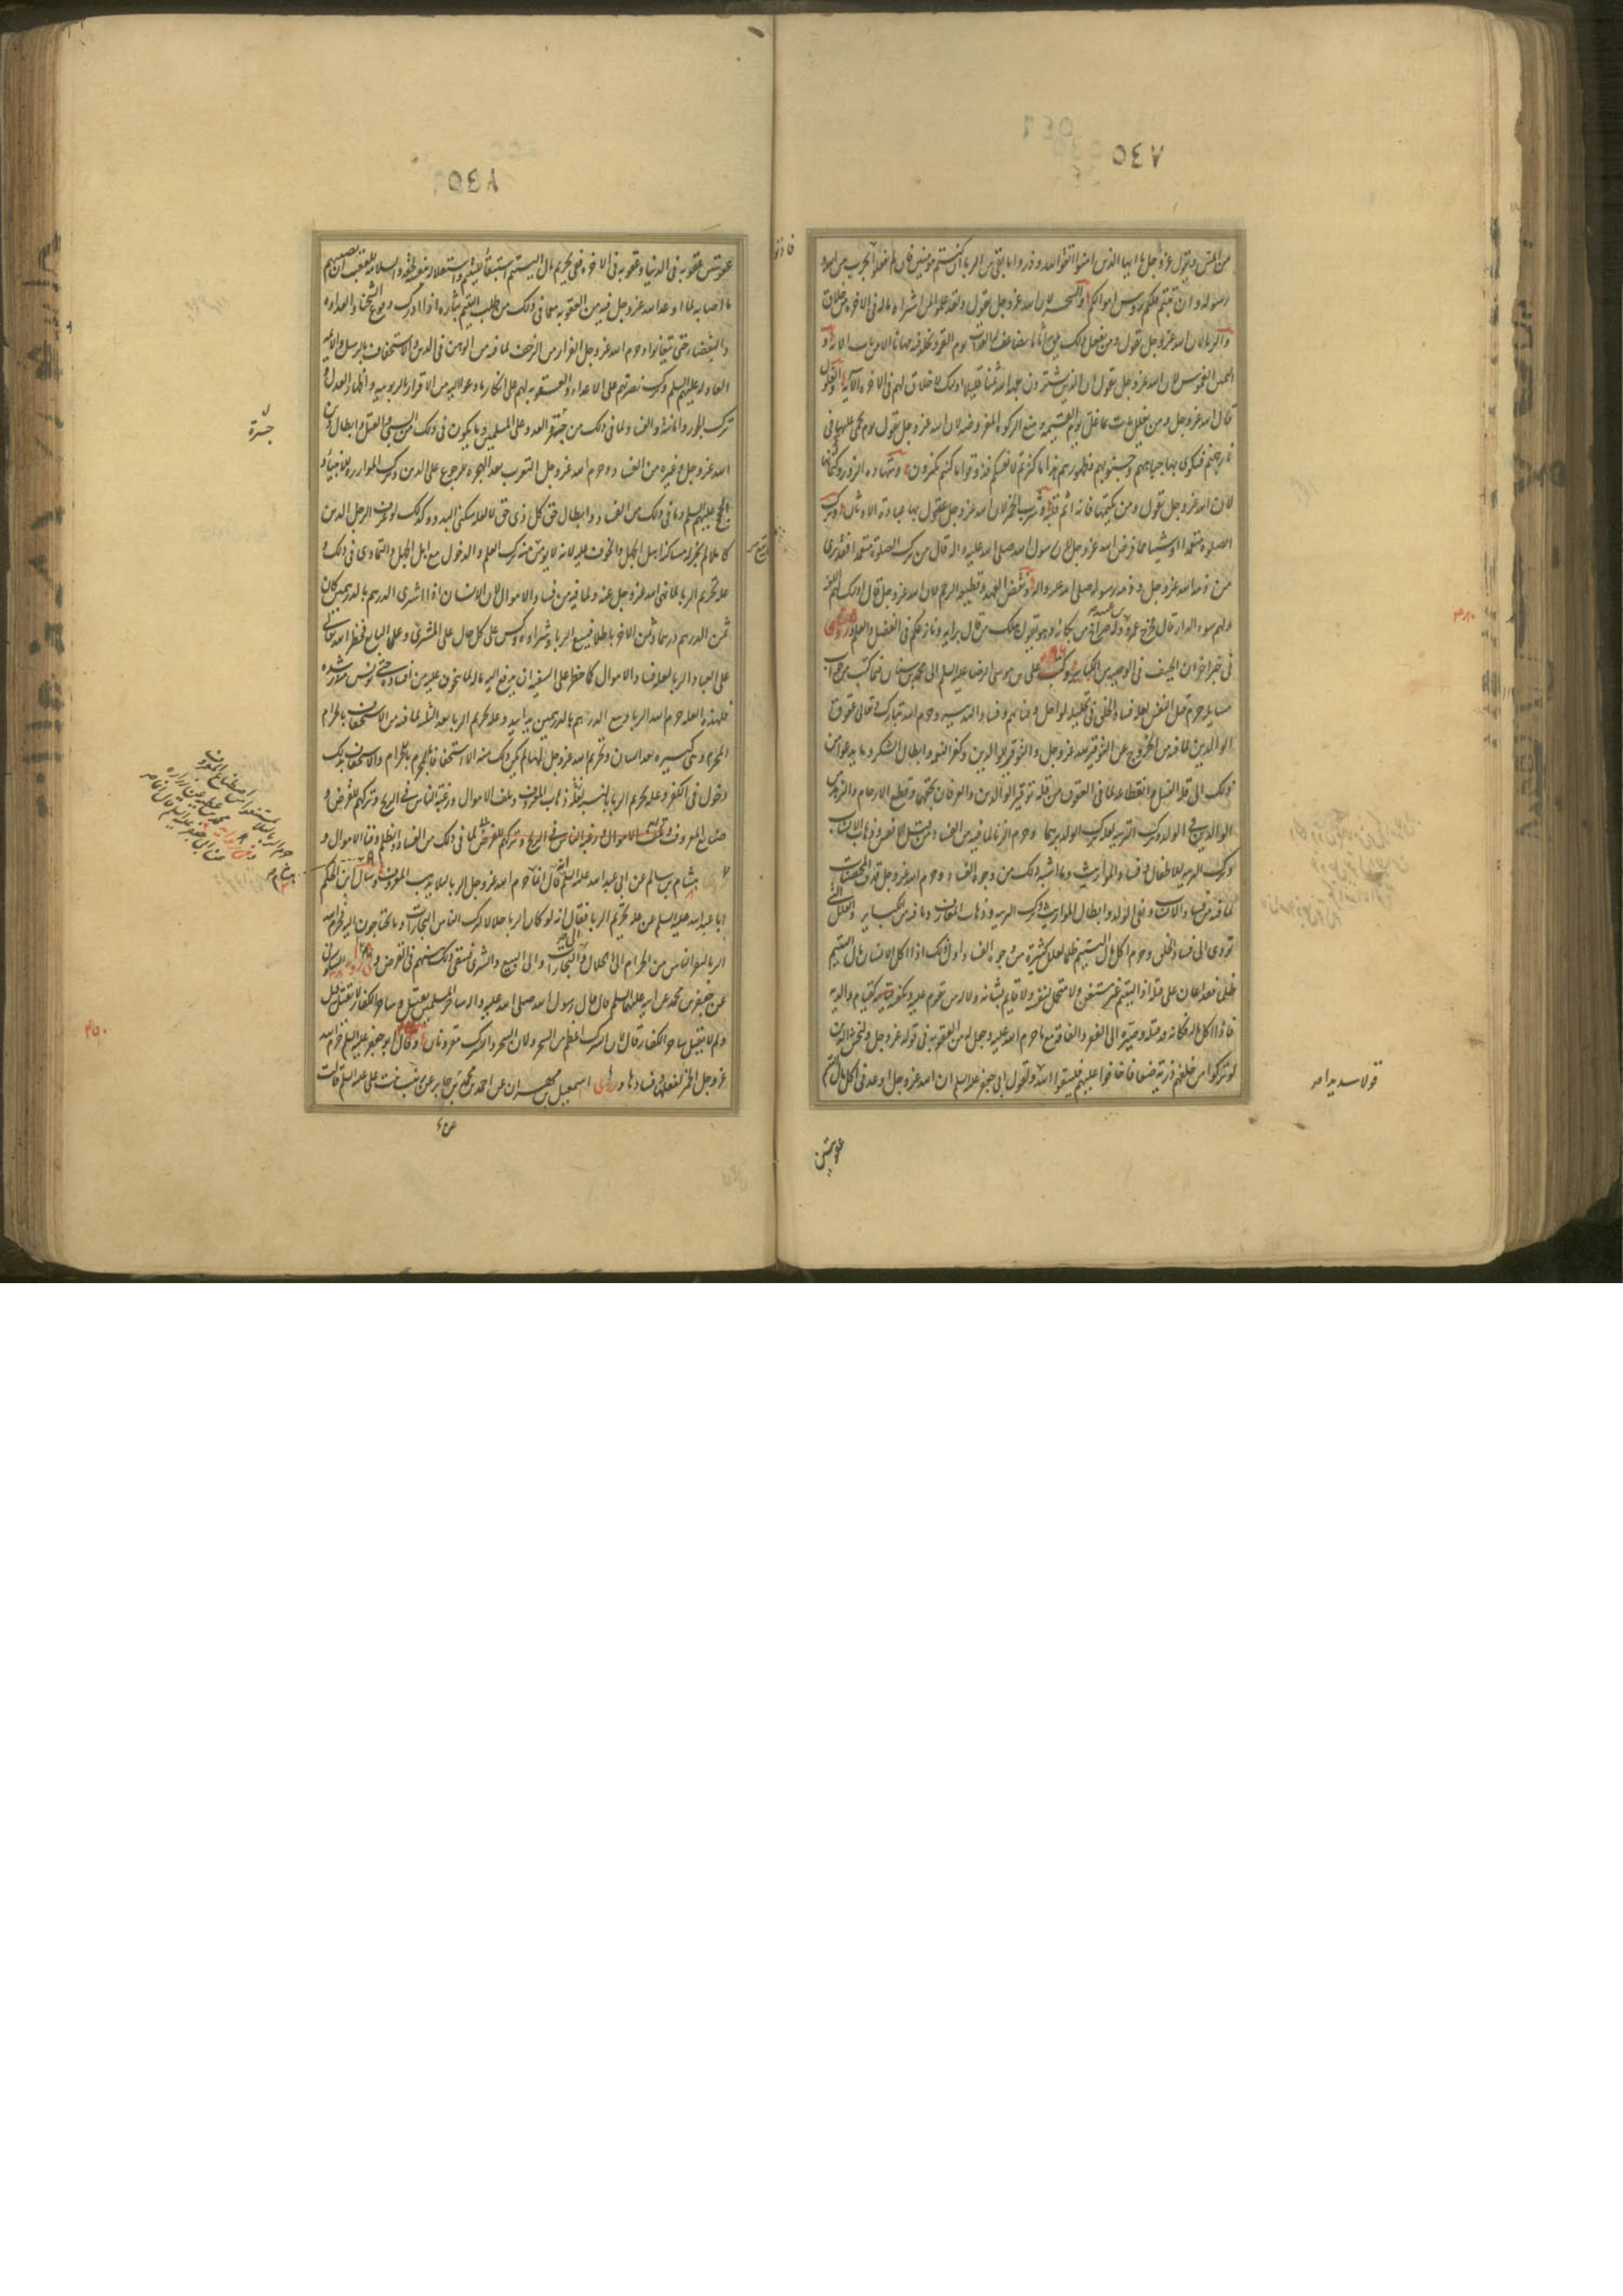 من المس ويقول عز وجل يا ايها الذين امنوا اتقوا الله وذروا ما بقى من الربا ان كنتم مؤمنين فان لم تفعلوا فأذنوا بحرب من الله و
رسوله وان تبتم فلكم رؤس اموالكم والسحر لان الله عز وجل يقول ولقد علموا لمن اشتراه ماله فى الاخرة من خلاق
والزنا لان الله عز وجل يقول ومن يفعل ذلك يلق أثاما يضاعف له العذاب يوم القيمة ويخلد فيه مهانا الا من تاب الاية و
اليمين الغموس لان الله عز وجل يقول ان الذين يشترون بعهد الله ثمنا قليلا اولئك لا خلاق لهم فى الاخرة الآية والغلول
قال الله عز وجل ومن يغلل يأت بما غل يوم القيمة ومنع الزكوة المفروضة لان الله عز وجل يقول يوم يحمى عليها فى
نار جهنم فتكوى بها جباههم وجنوبهم وظهورهم هذا ما كنزتم لانفسكم فذوقوا ما كنتم تكنزون وشهادة الزور وكتمان
لان الله عز وجل يقول ومن يكتمها فانه اثم قلبه وشرب الخمر لان الله عز وجل عدل بها عبادة الاوثان وترك
الصلوة متعمدا او شيئا مما فرض الله عز وجل لان رسول الله صلى الله عليه واله قال من ترك الصلوة متعمدا فقد برئ
من ذمة الله عز وجل وذمة رسوله صلى الله عليه واله ونقض العهد وقطيعة الرحم لان الله عز وجل قال اولئك لهم اللعنة
ولهم سوء الدار قال فخرج عمرو بن عبيد وله صراخ من بكائه وهو يقول هلك من قال برايه ونازعكم فى الفضل والعلم وروى
فى خبر اخر ان الحيف فى الوصية من الكبائر وكتب على بن موسى الرضا عليه السلم الى محمد بن سنان فيما كتب من جواب
مسايله حرم قتل النفس لعلة فساد الخلق فى تحليله لو احل وفنائهم وفساد التدبير وحرم الله تبارك وتعالى عقوق
الوالدين لما فيه من الخروج عن التوقير لله عز وجل والتوقير للوالدين وكفر النعمة وابطال الشكر وما يدعو من
ذلك الى قلة النسل وانقطاعه لما فى العقوق من قلة توقير الوالدين والعرفان بحقهما وقطع الارحام والزهد من
الوالدين فى الولد وترك التربية لعلة ترك الولد برهما وحرم الزنا لما فيه من الفساد من قتل الانفس وذهاب الانساب
وترك التربية للاطفال وفساد المواريث وما اشبه ذلك من وجوه الفساد وحرم الله عز وجل قذف المحصنات
لما فيه من فساد الانساب ونفى الولد وابطال المواريث وترك التربية وذهاب المعارف وما فيه من الكبائر والعلل التى
تؤدى الى فساد الخلق وحرم اكل مال اليتيم ظلما لعلل كثيرة من وجوه الفساد اول ذلك اذا اكل الانسان مال اليتيم
ظلما فقد اعان على قتله اذ اليتيم غير مستغن ولا متحمل لنفسه ولا قائم بشانه ولا له من يقوم عليه ويكفيه كقيام والديه
فاذا اكل ماله فكانه قد قتله وصيره الى الفقر والفاقة مع ما حرم الله عليه وجعل له من العقوبة فى قوله عز وجل وليخش الذين
لو تركوا من خلفهم ذرية ضعافا خافوا عليهم فليتقوا الله ولقول ابى جعفر عليه السلم ان الله عز وجل اوعد فى اكل مال اليتيم
قولا سديدا صح
عقوبتين
عقوبتين عقوبة فى الدنيا وعقوبة فى الاخرة ففى تحريم مال اليتيم استبقاء اليتيم واستقلاله بنفسه والسلامة للعقب ان يصيبهم
ما اصابه لما اوعد الله عز وجل فيه من العقوبة مع ما فى ذلك من طلب اليتيم بثاره اذا ادرك ووقوع الشحناء والعداوة
والبغضاء حتى يتفانوا وحرم الله عز وجل الفرار من الزحف لما فيه من الوهن فى الدين والاستخفاف بالرسل والائمة
العادلة عليهم السلم وترك نصرتهم على الاعداء والعقوبة لهم على انكار ما دعوا اليه من الاقرار بالربوبية واظهار العدل و
ترك الجور واماتة الفساد ولما فى ذلك من جرأة العدو على المسلمين وما يكون فى ذلك من السبى والقتل وابطال دين
الله عز وجل وغيره من الفساد وحرم الله عز وجل التعرب بعد الهجرة للرجوع عن الدين وترك الموازرة للانبياء و
الحجج عليهم السلم وما فى ذلك من الفساد وابطال حق كل ذى حق لا لعلة سكنى البدو وكذلك لو عرف الرجل الدين
كاملا لم يجز له مساكنة اهل الجهل والخوف عليه لانه لا يؤمن منه ترك العلم والدخول مع اهل الجهل والتمادى فى ذلك و
علة تحريم الربا لما نهى الله عز وجل عنه ولما فيه من فساد الاموال لان الانسان اذا اشترى الدرهم بالدرهمين كان
ثمن الدرهم درهما وثمن الاخر باطلا فبيع الربا وشراؤه وكس على كل حال على المشترى وعلى البايع فحظر الله تعالى
على العباد الربا لعلة فساد الاموال كما حظر على السفيه ان يدفع اليه ماله لما يتخوف عليه من افساده حتى يونس منه رشده
فلهذه العلة حرم الله الربا وبيع الدرهم بالدرهمين يدا بيد وعلة تحريم الربا بعد البينة لما فيه من الاستخفاف بالحرام
المحرم وهى كبيرة بعد البيان وتحريم الله عز وجل لها ولم يكن ذلك منه الا استخفافا بالمحرم للحرام والاستخفاف بذلك
دخول فى الكفر وعلة تحريم الربا بالنسية لعلة ذهاب المعروف وتلف الاموال ورغبة الناس فى الربح وتركهم القرض و
صنائع المعروف ولما فى ذلك من الفساد والظلم وفناء الاموال و
هشام بن سالم عن ابى عبد الله عليه السلم قال انما حرم الله عز وجل الربا لئلا يذهب المعروف وسأل هشام ابن الحكم
ابا عبد الله عليه السلم عن علة تحريم الربا فقال انه لو كان الربا حلالا لترك الناس التجارات وما يحتاجون اليه فحرم الله
الربا ليفر الناس من الحرام الى الحلال والى التجارات والى البيع والشرى فيبقى ذلك بينهم فى القرض وفى رواية السكونى
عن جعفر بن محمد عن ابيه عليهما السلم قال قال رسول الله صلى الله عليه واله ساحر المسلمين يقتل وساحر الكفار لا يقتل قيل
ولم لا يقتل ساحر الكفار قال لان الشرك اعظم من السحر ولان السحر والشرك مقرونان وقال ابو جعفر عليه السلم حرم الله
عز وجل الخمر لفعلها وفسادها وروى اسمعيل بن مهران عن احمد بن محمد عن جابر عن زينب بنت على عليه السلم قالت